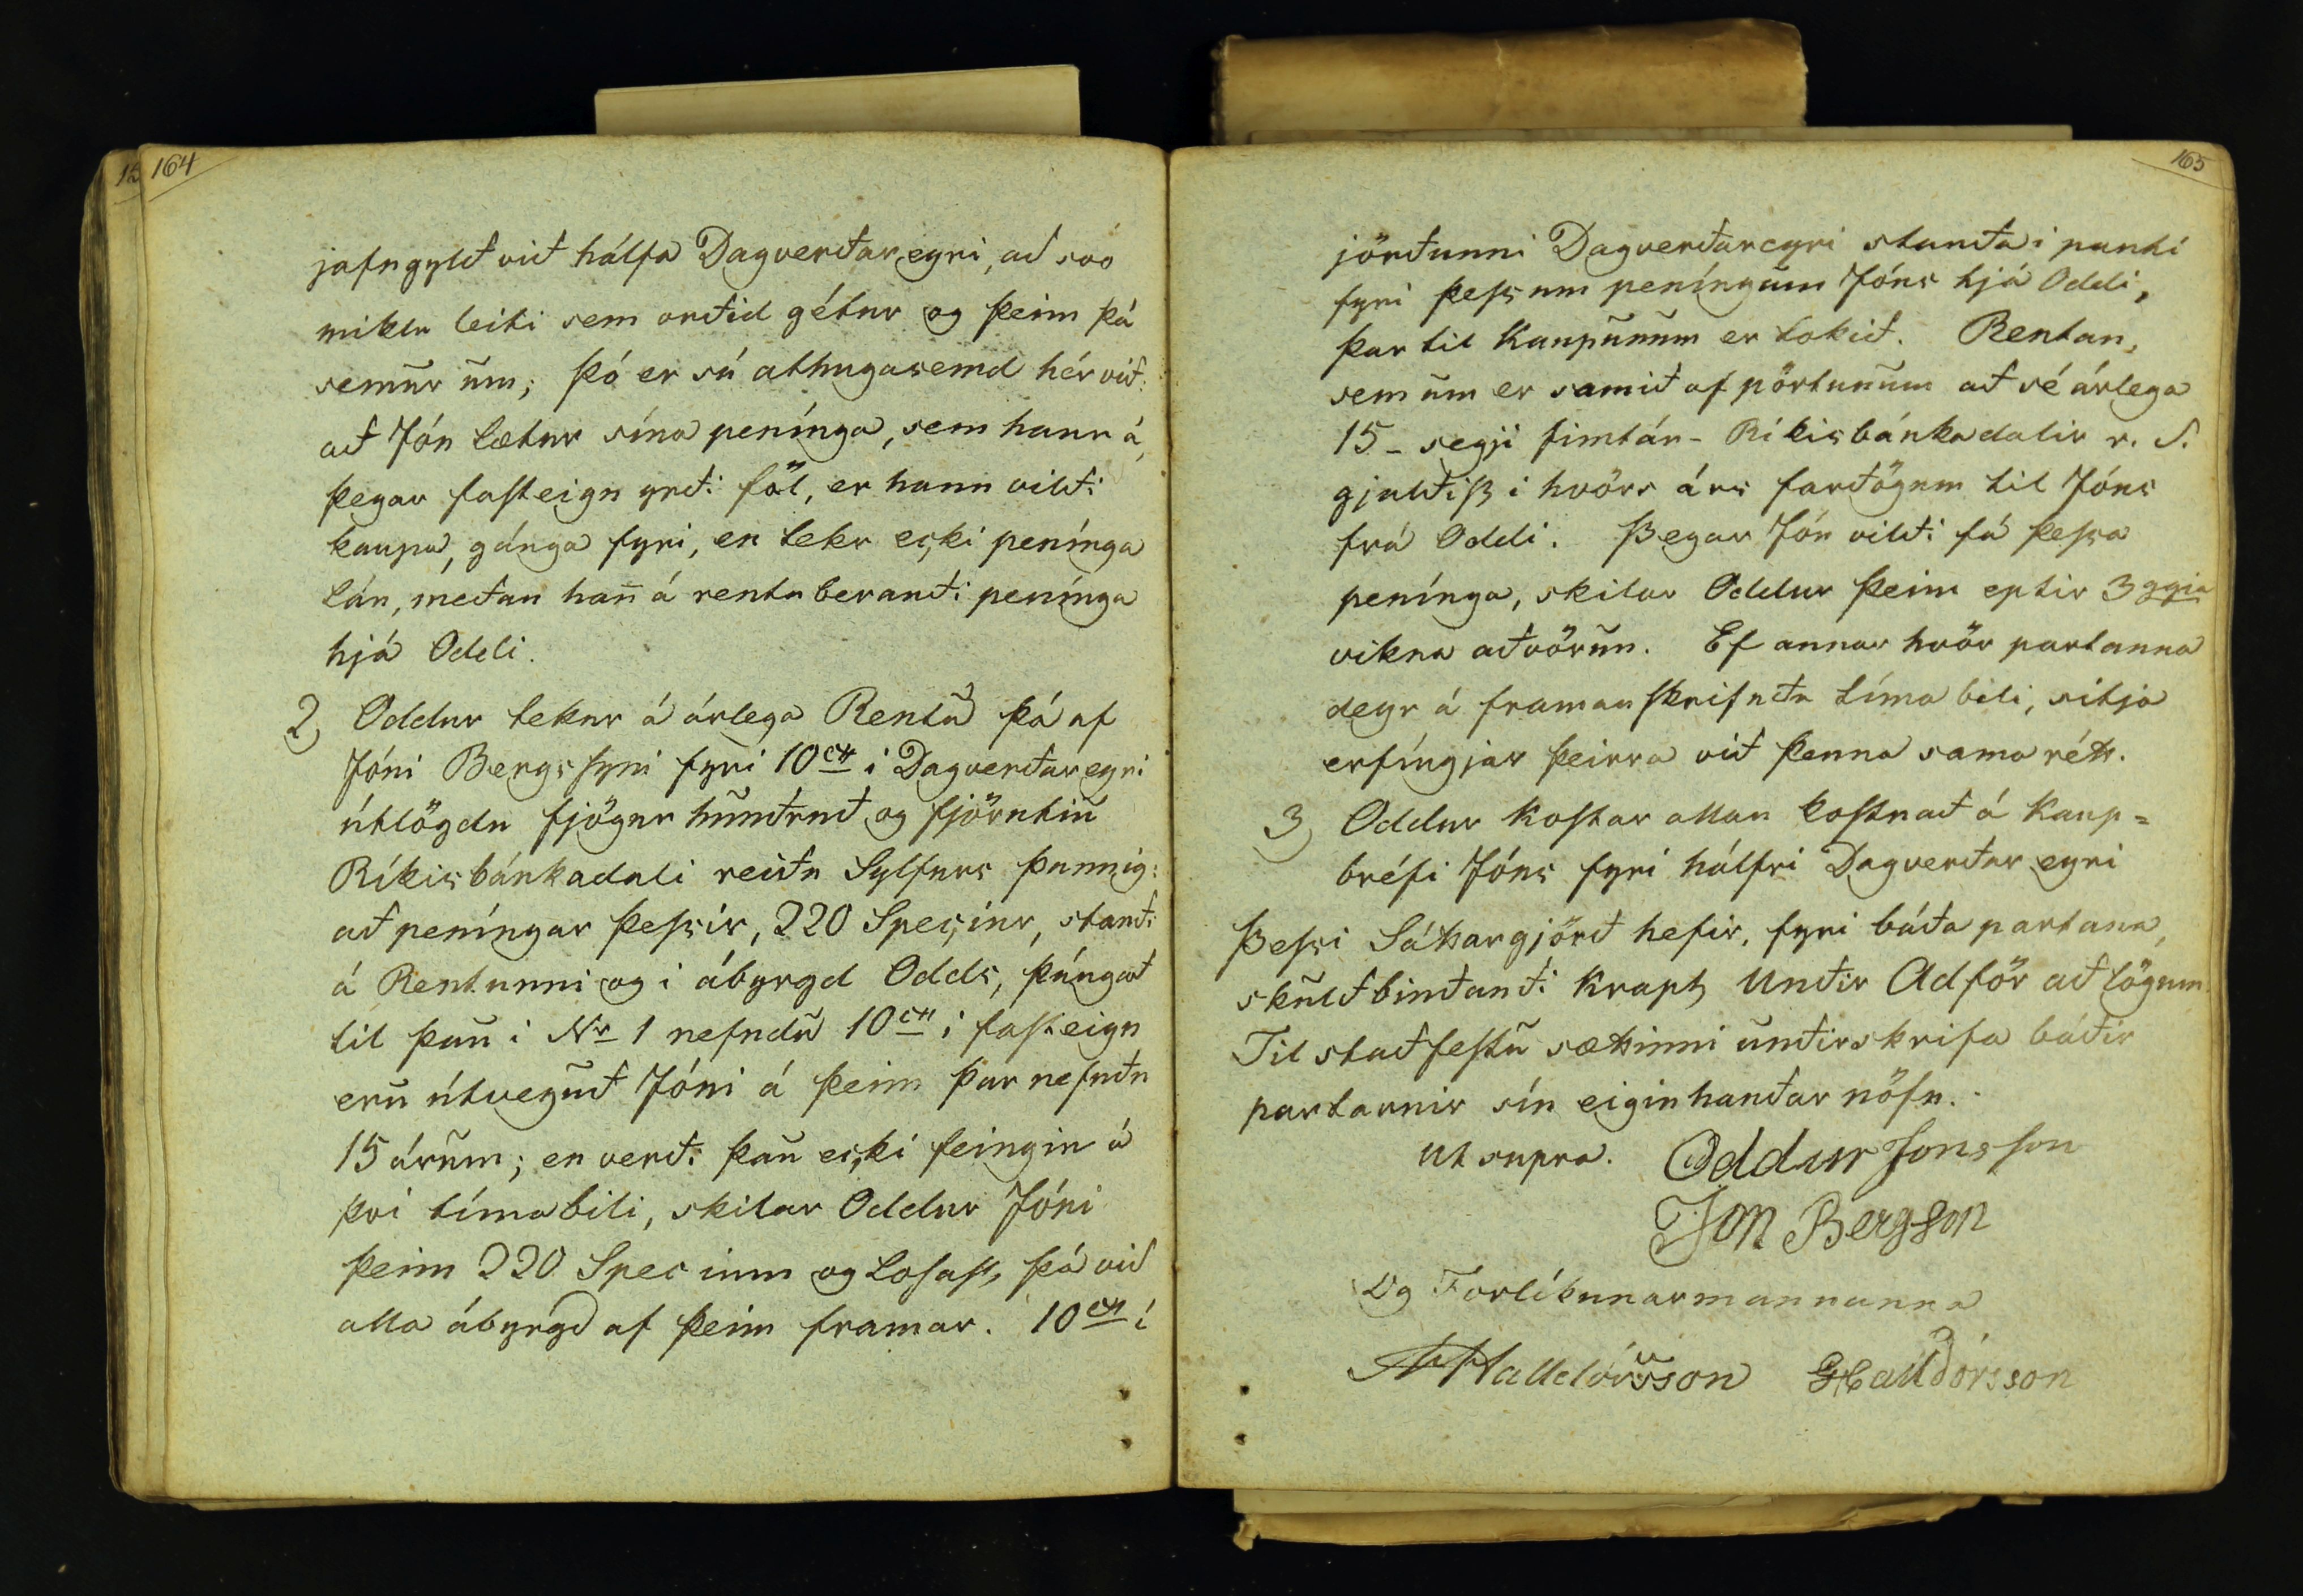 164
jafngylð við hálfa Dagverðareyri, að svo
miklu leiti sem orðið gétur og þeim þá
semŭr ŭm; þó er sú athugasemd hér við:
að Jón lætur sína penínga, sem hann á,
þegar fasteign yrði föl, er hann vildi
kaupa, gánga fyri, en tekr ecki penínga
lán, meðan han̄ á rentuberandi penínga
hjá Oddi.
2) Oddur tekur á árlega Rentŭ þá af
Jóni Bergssyni fyri 10 cɴ í Dagverðareyri
útlögdu fjögur hŭndruð og fjörutíŭ
Ríkisbánkadali reiðu Sylfurs þannig:
að peníngar þessir, 220 Specíur, standi
á Rentunni og i ábyrgd Odds, þángað
til þaŭ i Nr 1 nefndŭ 10 cɴ í fasteign
erŭ útveguð Jóni á þeim þar nefndu
15 árŭm; en verði þaŭ ecki feingin á
því tímabili, skilar Oddur Jóni
þeim 220 Specium og losast þá við
alla ábyrgð af þeim framar. 10 cɴ í
165
jörðunni Dagverðareyri standa i panti
fyri þessum peníngŭm Jóns hjá Oddi,
þar til Kaupŭnŭm er lokið. Rentan,
sem ŭm er samið af pörtunŭm að sé árlega
15 - segji fimtán - Ríkisbánkadalir r. S.
gjaldist i hvörs árs fardögum til Jóns
frá Oddi. Þegar Jón vildi fá þessa
penínga, skilar Oddur þeim eptir 3ggja
vikna aðvörŭn. Ef annar hvör partanna
deyr á framanskrifuðu tímabili, sitja
erfíngjar þeirra við þenna sama rétt.
3) Oddur Kostar allan kostnað á Kaup=
bréfi Jóns fyri hálfri Dagverðareyri
Þessi Sáttargjörð hefir, fyri báða partana,
skŭldbindandi krapt Undir Adför að lögum.
Til staðfestŭ sættinni ŭndirskrifa báðir
partarnir sín eiginhandar nöfn.
Ut supra. Oddur Jonsson
Jon Bergson
Og Forlíkunarmannanna
Halldórsson G Halldórsson